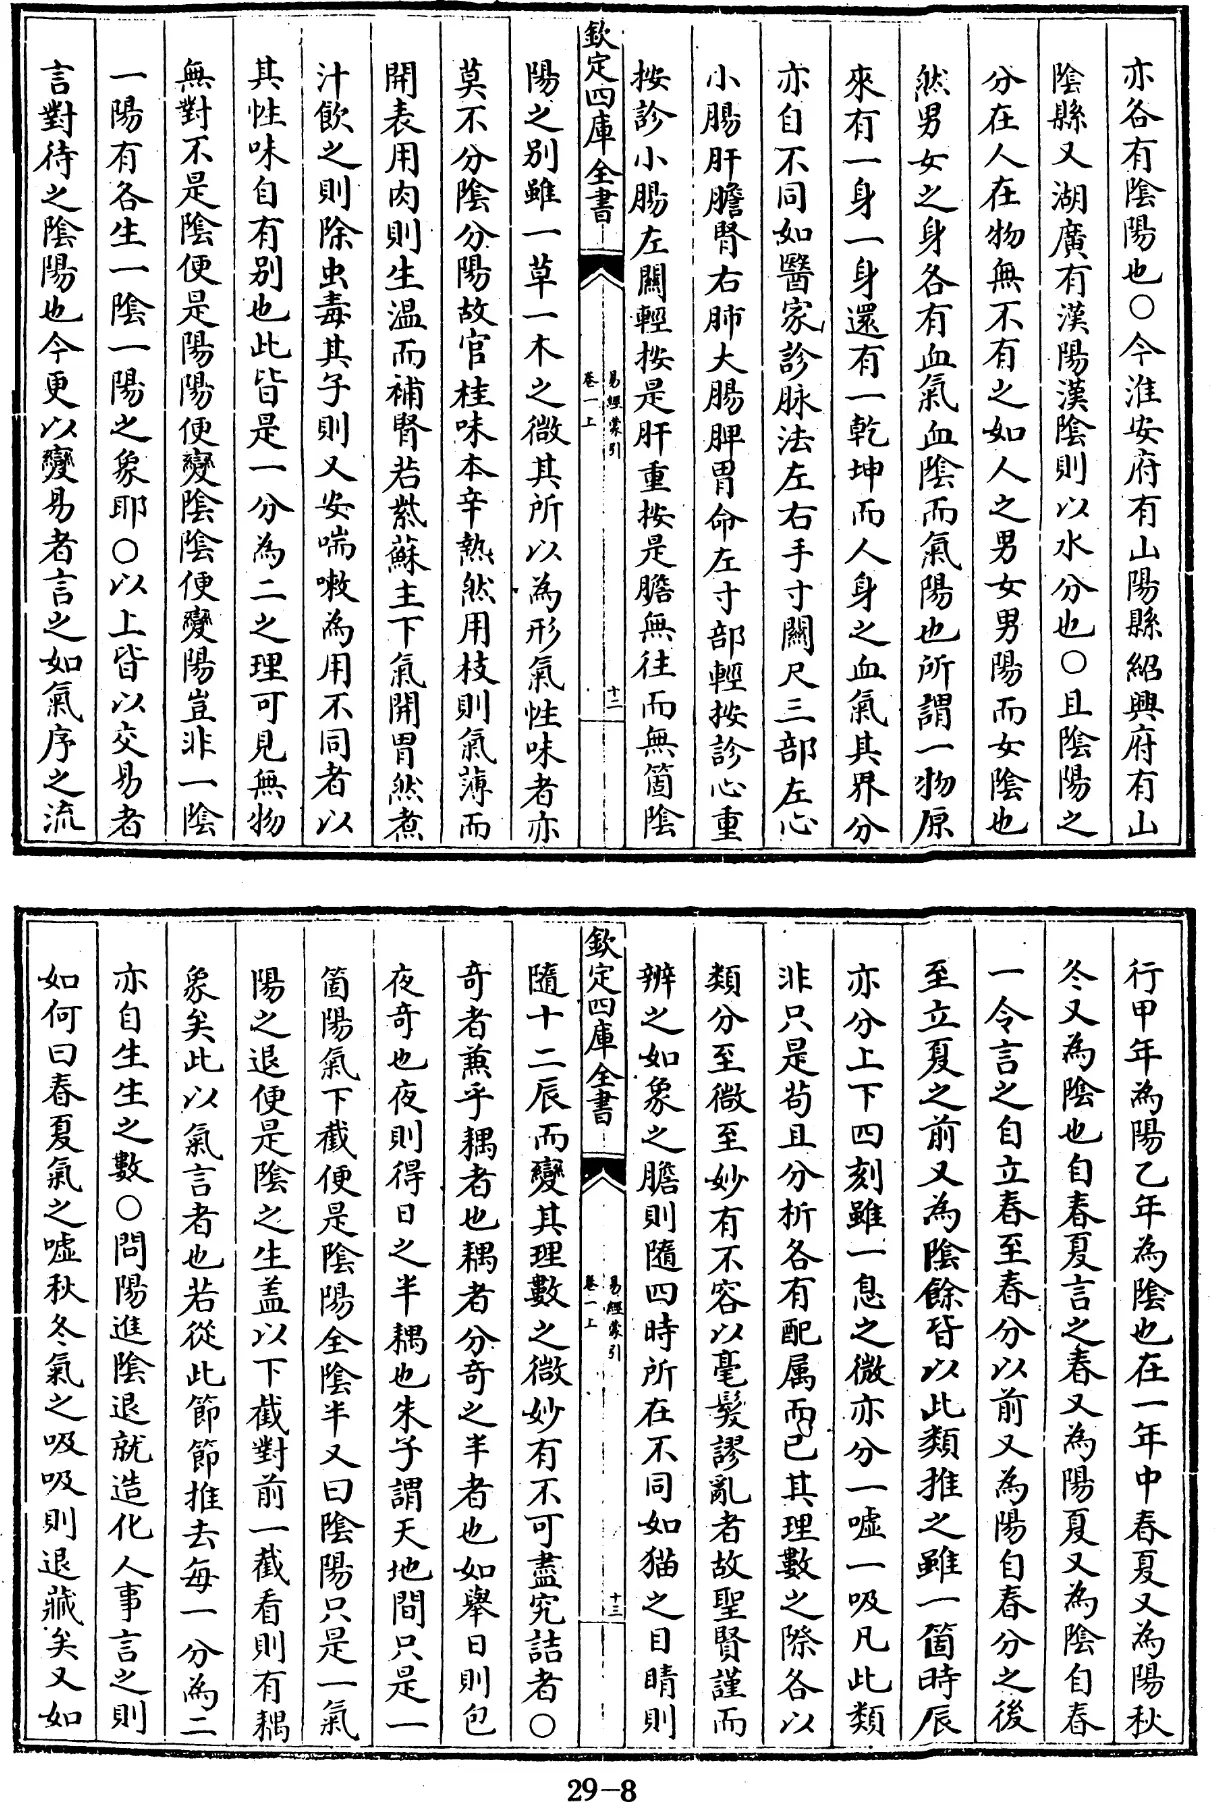 亦各有陰陽也○今淮安府有山陽縣紹興府有山
陰縣又湖廣有漢陽漢陰則以水分也○且陰陽之
分在人在物無不有之如人之男女男陽而女陰也
然男女之身各有血氣血陰而氣陽也所謂一物原
來有一身一身還有一乾坤而人身之血氣其界分
亦自不同如醫家診脉法左右手寸關尺三部左心
小腸肝膽腎右肺大腸脾胃命左寸部輕按診心重
按診小腸左關輕按是肝重按是膽無往而無箇陰
欽定四庫全書
易經蒙引
卷一上
十二
陽之別雖一草一木之微其所以為形氣性味者亦
莫不分陰分陽故官桂味本辛熱然用枝則氣薄而
開表用肉則生温而補腎若紫蘇主下氣開胃然煮
汁飲之則除虫毒其子則又安喘嗽為用不同者以
其性味自有別也此皆是一分為二之理可見無物
無對不是陰便是陽陽便變陰陰便變陽豈非一陰
一陽有各生一陰一陽之象耶○以上皆以交易者
言對待之陰陽也今更以變易者言之如氣序之流
行甲年為陽乙年為陰也在一年中春夏又為陽秋
冬又為陰也自春夏言之春又為陽夏又為陰自春
一令言之自立春至春分以前又為陽自春分之後
至立夏之前又為陰餘皆以此類推之雖一箇時辰
亦分上下四刻雖一息之微亦分一噓一吸凡此類
非只是苟且分析各有配属而已其理數之際各以
類分至微至妙有不容以毫髮謬亂者故聖賢謹而
辨之如象之膽則隨四時所在不同如猫之目睛則
欽定四庫全書
易經蒙引
卷一上
十三
隨十二辰而變其理數之微妙有不可盡究詰者○
奇者兼乎耦者也耦者分奇之半者也如舉日則包
夜奇也夜則得日之半耦也朱子謂天地間只是一
箇陽氣下截便是陰陽全陰半又曰陰陽只是一氣
陽之退便是陰之生盖以下截對前一截看則有耦
象矣此以氣言者也若從此節節推去每一分為二
亦自生生之數○問陽進陰退就造化人事言之則
如何曰春夏氣之噓秋冬氣之吸吸則退藏矣又如
29-8